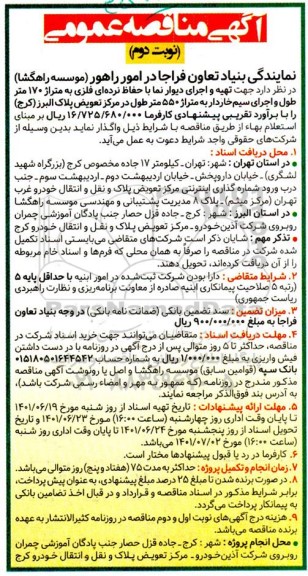 آگهی مناقصه عمومی
(نوبت دوم)
نمایندگی بنیاد تعاون فراجا در امور راهور (موسسه راهگشا)
در نظر دارد جهت تهیه و اجرای دیوار نما با حفاظ نرده‌ای فلزی به متراژ ۱۷۰ متر
طول و اجرای سیم‌خاردار به متراژ ۵۵۰ متر طول در مرکز تعویض پلاک البرز (کرج)
را با برآورد تقریبی پیشنهادی کارفرما ۱۶/۷۲۵/۶۸۰/۰۰۰ ریال بر مبنای
استعلام بهاء از طریق مناقصه با شرایط ذیل واگذار نماید بدین وسیله از
شرکت‌های حقوقی واجد شرایط دعوت به عمل می‌آید.
۱. محل دریافت اسناد :
• در استان تهران : شهر: تهران - کیلومتر ۱۷ جاده مخصوص کرج (بزرگراه شهید
لشگری) - خیابان داروپخش - خیابان اردیبهشت دوم - اردیبهشت سوم - جنب
درب ورود شماره گذاری اینترنتی مرکز تعویض پلاک و نقل و انتقال خودرو غرب
تهران (مرکز میثم) - پلاک ۸ مدیریت پشتیبانی و مهندسی موسسه راهگشا
• در استان البرز : شهر : کرج - جاده قزل حصار جنب پادگان آموزشی چمران
روبروی شرکت آذین‌خودرو - مرکز تعویض پلاک و نقل و انتقال خودرو کرج
• تذکر مهم : شایان ذکر است شرکت‌های متقاضی می‌بایستی اسناد تکمیل
شده شرکت در مناقصه را صرفاً به همان محلی که فرم‌ها و اسناد خام مربوطه
را از آن دریافت کرده‌اند، تحویل دهند.
۲. شرایط متقاضی : دارا بودن شرکت ثبت‌شده در امور ابنیه با حداقل پایه ۵
(رتبه ۵ صلاحیت پیمانکاری ابنیه صادره از معاونت برنامه‌ریزی و نظارت راهبردی
ریاست جمهوری)
۳. میزان تضمین : سند تضمین بانکی (ضمانت نامه بانکی) در وجه بنیاد تعاون
فراجا به مبلغ ۹۰۰/۰۰۰/۰۰۰ ریال
۴. مهلت دریافت اسناد : متقاضیان می‌توانند جهت خرید اسناد شرکت در
مناقصه، حداکثر تا ۵ روز متوالی پس از درج آگهی در روزنامه با در دست داشتن
فیش واریزی به مبلغ ۱/۰۰۰/۰۰۰ ریال به شماره حساب ۰۱۵۱۸۰۵۰۱۶۴۴۵۴۲
بانک سپه (قوامین سابق) موسسه راهگشا و اصل یا رونوشت آگهی مناقصه
مذکور مندرج در روزنامه (که ممهور به مهر و امضاء شرکت باشد)،
به آدرس بند فوق‌الذکر مراجعه نمایند.
۵. مهلت ارائه پیشنهادات : تاریخ تهیه اسناد از روز شنبه مورخ ۱۴۰۱/۰۶/۱۹
تا پایان وقت اداری روز چهارشنبه (ساعت ۱۶:۰۰) مورخ ۱۴۰۱/۰۶/۲۳ و تاریخ
تحویل اسناد از روز پنجشنبه مورخ ۱۴۰۱/۰۶/۲۴ تا پایان وقت اداری روز شنبه
(ساعت ۱۶:۰۰) مورخ ۱۴۰۱/۰۷/۰۲ می‌باشد.
۶. کارفرما در رد یا قبول پیشنهادها مختار است.
۷. زمان انجام و تکمیل پروژه : حداکثر به مدت ۷۵ (هفتاد و پنج) روز متوالی می‌باشد.
۸. در صورت برنده شدن تا مبلغ ۲۵ درصد مبلغ پیشنهادی، به عنوان پیش پرداخت،
برابر شرایط مذکور در اسناد مناقصه و قرارداد و در قبال اخذ تضامین بانکی
به پیمانکار پرداخت می‌گردد.
۹. هزینه درج آگهی‌های نوبت اول و دوم مناقصه در روزنامه کثیرالانتشار به عهده
برنده مناقصه می‌باشد.
• محل انجام پروژه : شهر : کرج - جاده قزل حصار جنب پادگان آموزشی چمران
روبروی شرکت آذین‌خودرو - مرکز تعویض پلاک و نقل و انتقال خودرو کرج